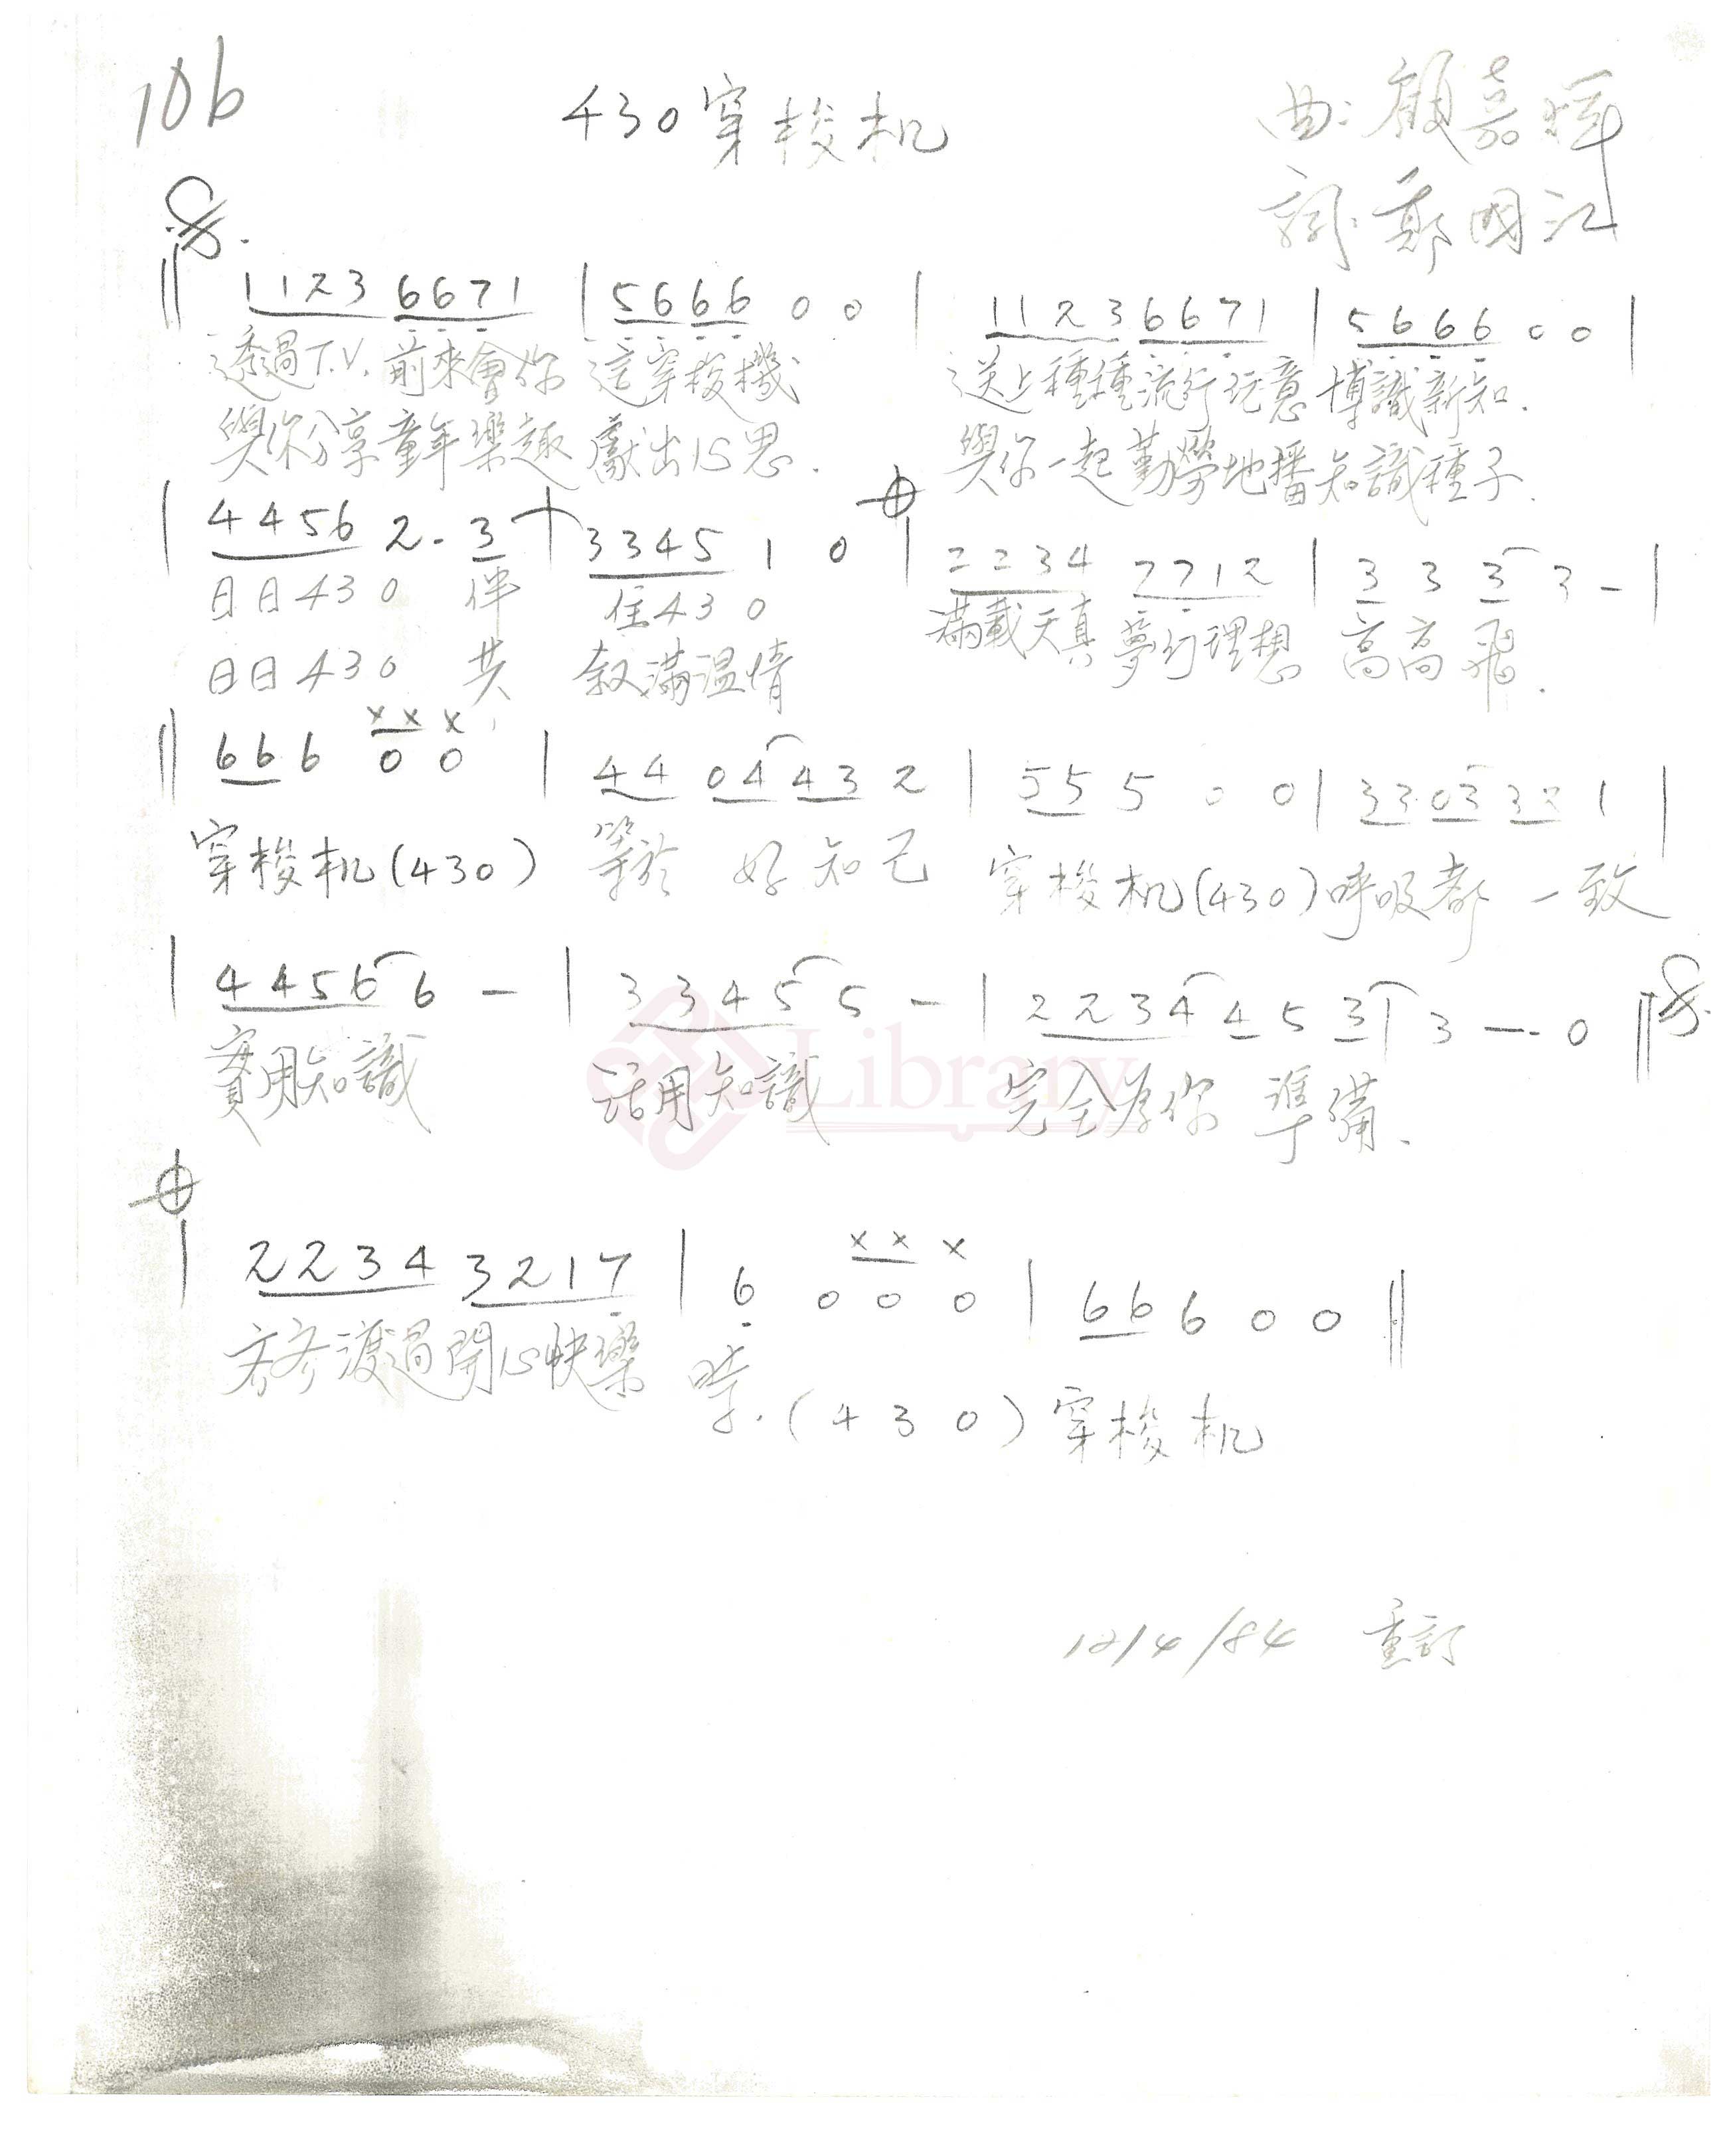 106
430穿梭机
曲:顧嘉煇
詞:鄭國江
‖ 1123 6671 | 5666 0 0 | 1123 6671 | 5666 0 0 |
透過T.V.前來會你 這穿梭機 送上種種流行玩意 博識新知.
與你分享童年樂趣 獻出心思. 與你一起勤勞地播知識種子.
| 4456 2. 3 | 3345 1 0 | 2234 7712 | 3 3 3 3 - |
日日430 伴 住430 滿載天真夢幻理想 高高飛.
日日430 共 敘滿温情
x x x
‖ 66 6 0 0 | 44 04 43 2 | 55 5 0 0 | 33 03 32 1 |
穿梭机(430) 等於 好知己 穿梭机(430)呼吸都一致
| 4456 6 - | 3345 5 - | 2234 4 5 3 | 3 - 0 ‖
實用知識 活用知識 完全為你 準備.
Library
| 2234 3217 | 6 0 0 0 | 66 6 0 0 ‖
x x x
齐齐渡過開心快樂 時.(430)穿梭机
12/4/84 重訂